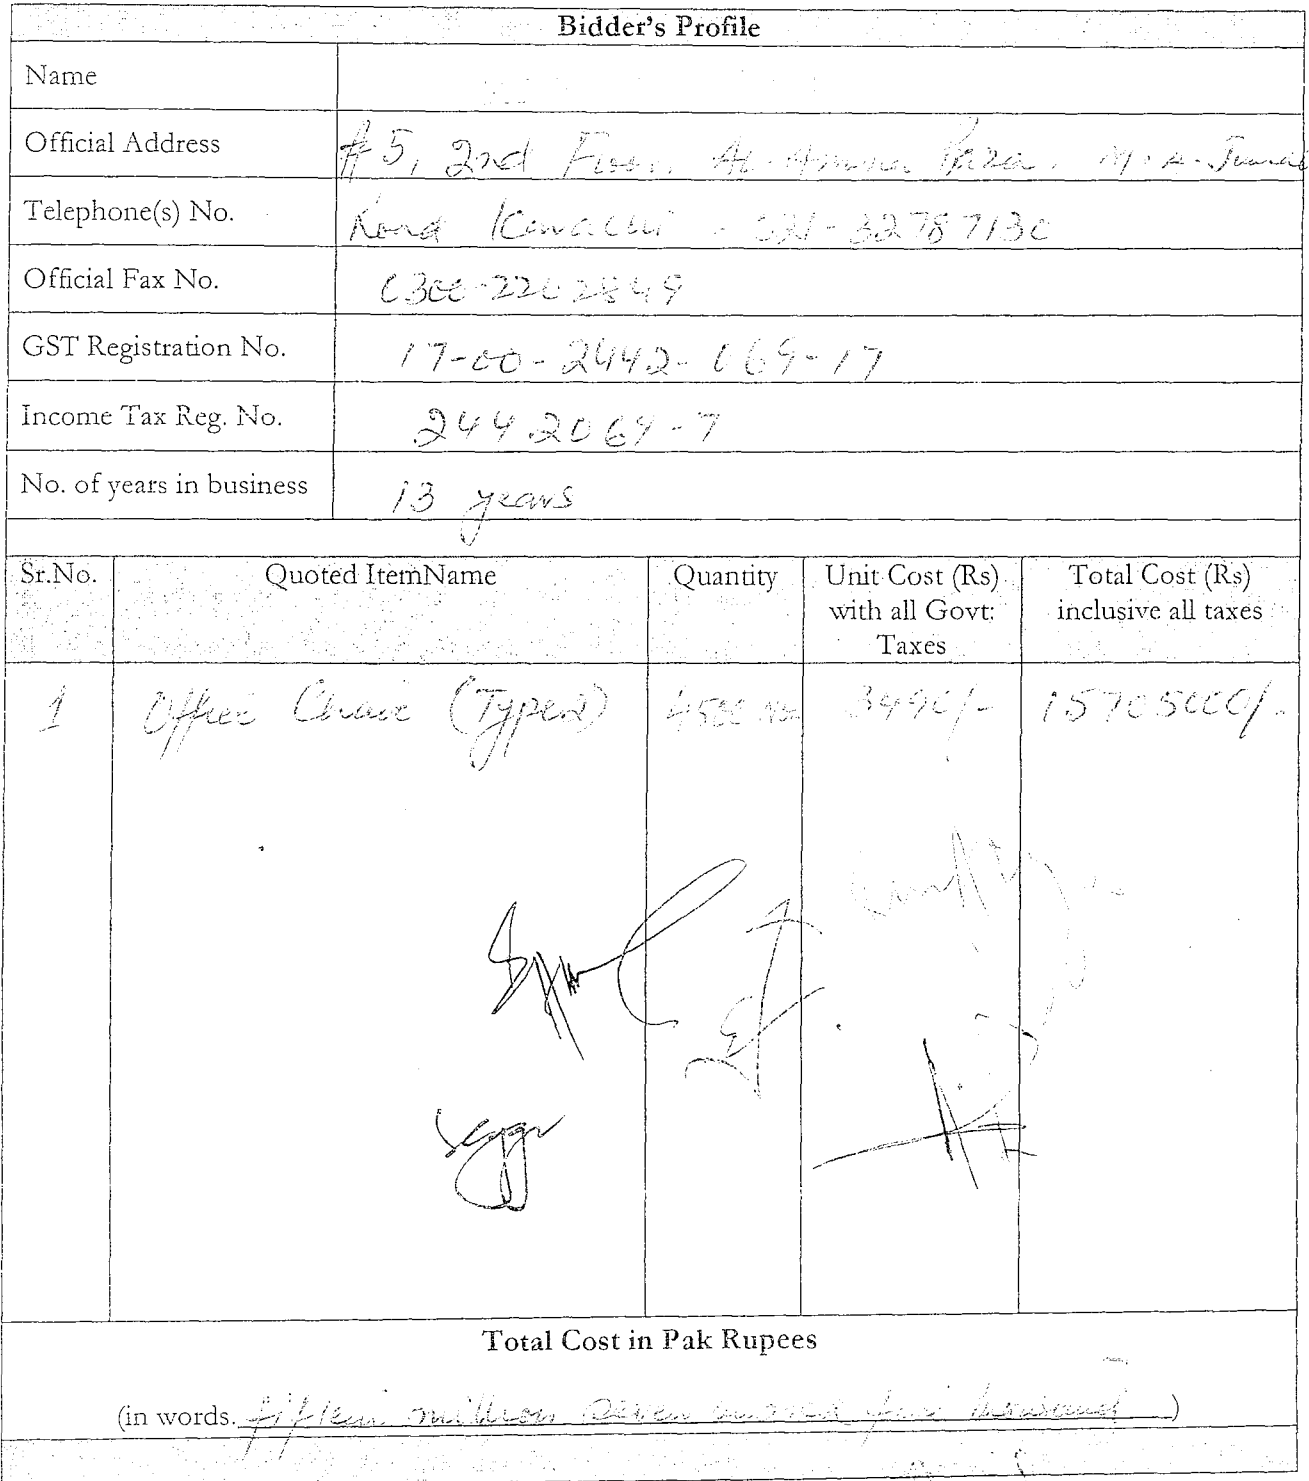 Bidder's Profile
Name
Official Address #5, 2nd Floor, Al-Amna Plaza, M.A. Jinnah
Telephone(s) No. Road Karachi - 021-32787130
Official Fax No. 0300-2202849
GST Registration No. 17-00-2442-069-17
Income Tax Reg. No. 2442069-7
No. of years in business 13 years
Sr.No. Quoted ItemName Quantity Unit Cost (Rs) Total Cost (Rs)
with all Govt: inclusive all taxes
Taxes
1 Office Chair (Type2) 4500 Nos 3490/- 15705000/-
Total Cost in Pak Rupees
(in words. fifteen million seven hundred five thousand )